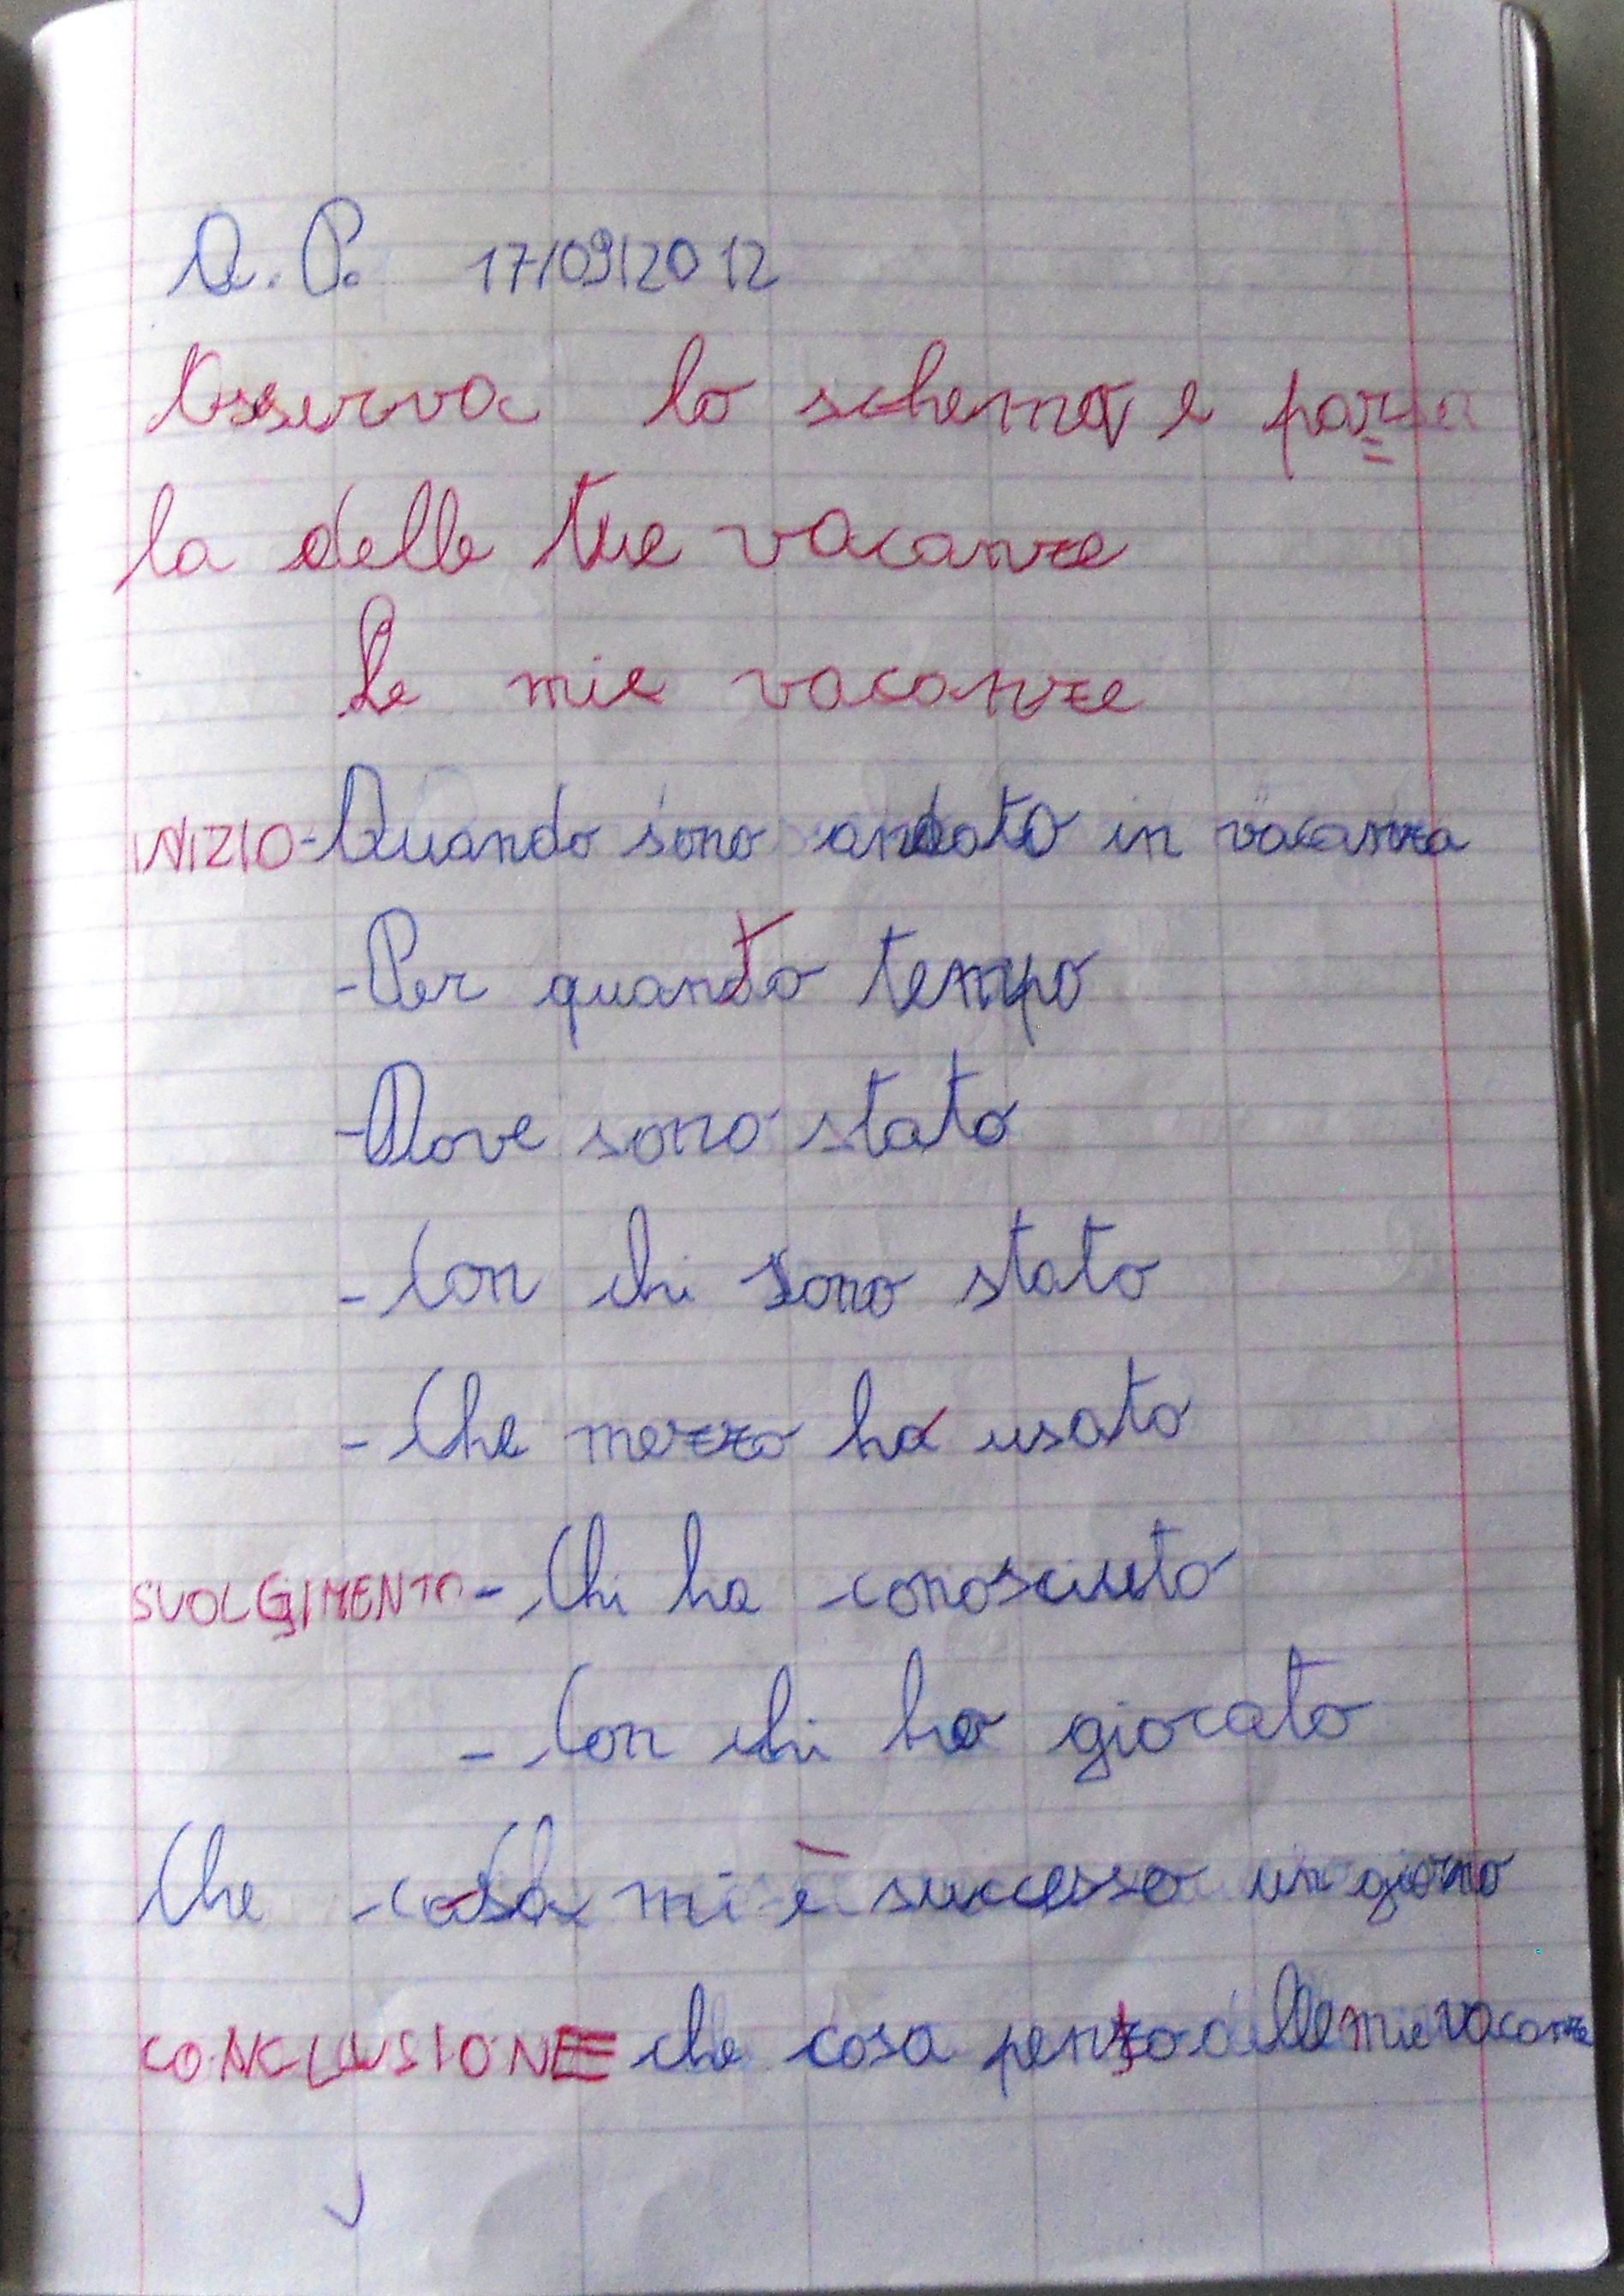 A. P. 17/09/2012
Osserva lo schema e par
la delle tue vacanze
Le mie vacanze
INIZIO-Quando sono andato in vacanza
-Per quanto tempo
-Dove sono stato
-Con chi sono stato
-Che mezzo ho usato
SVOLGIMENTO-Chi ho conosciuto
-Con chi ho giocato
Che cosa mi è successo un giorno
CONCLUSIONE che cosa penso delle mie vacanze